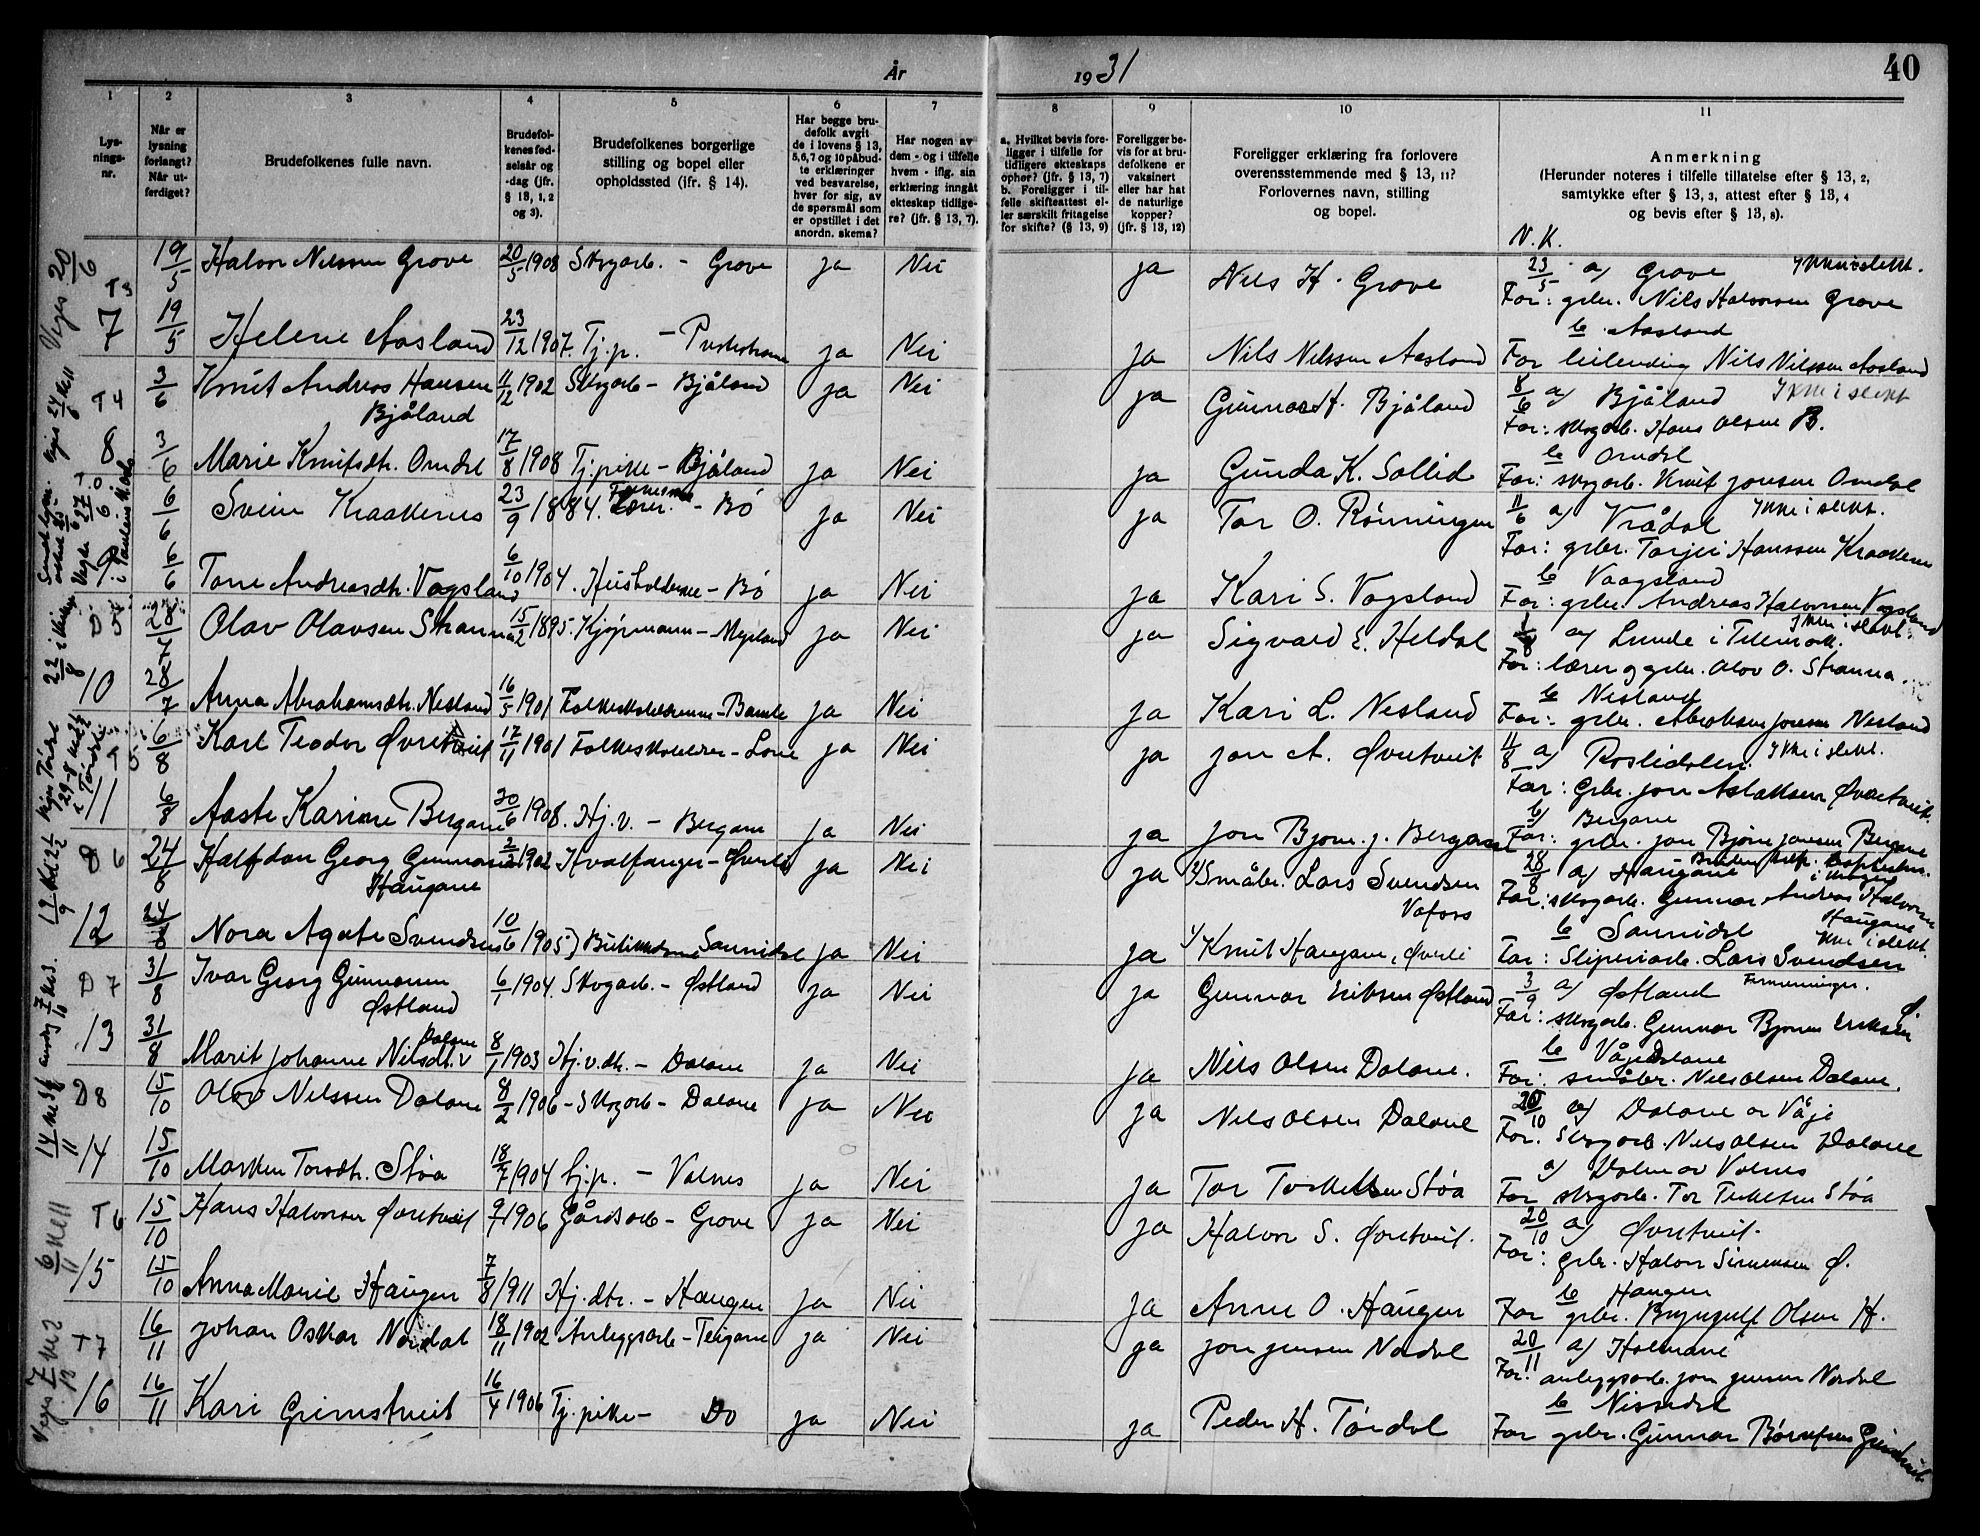 År 1931
40
1 2 3 4 5 6 7 8 9 10 11
Lys-
nings-
nr.
Når er
lysning
forlangt?
Når ut-
ferdiget?
Brudefolkenes fulle navn.
Brudefol-
kenes fød-
selsår og
-dag (jfr.
§ 13, 1, 2
og 3).
Brudefolkenes borgerlige
stilling og bopel eller
opholdssted (jfr. § 14).
Har begge bru-
defolk avgit
de i lovens § 13,
5,6,7 og 10 påbud-
te erklæringer
ved besvarelse,
hver for sig, av
de spørsmål som
er opstillet i det
anordn. skema?
Har nogen av
dem - og i tilfelle
hvem - iflg. sin
erklæring inngåt
ekteskap tidlige-
re? (jfr. § 13, 7).
a. Hvilket bevis fore-
ligger i tilfelle for
tidligere ekteskaps
ophør? (jfr. § 13, 7)
b. Foreligger i til-
felle skifteattest el-
ler særskilt fritagelse
for skifte? (§ 13, 9)
Foreligger be-
vis for at bru-
defolkene er
vaksinert
eller har hat
de naturlige
kopper?
(jfr. § 13, 12)
Foreligger erklæring fra forlovere
overensstemmende med § 13, 11?
Forlovernes navn, stilling
og bopel.
Anmerkning
(Herunder noteres i tilfelle tillatelse efter § 13, 2,
samtykke efter § 13, 3, attest efter § 13, 4
og bevis efter § 13, 8).
V. K.
Vies 20/6
T3 19/5 Halvor Nilssen Grove 20/5 1908 Skogarb. - Grove ja Nei ja Nils H. Grove 23/5 a/ Grove Ikke i slekt.
Far: gbr. Nils Halvorsen Grove
7 19/5 Helene Aasland 23/12 1907. Tj.p. - ja Nei ja Nils Nilssen Aasland b Aasland
Far leilending Nils Nilssen Aasland
T4 3/6 Knut Andreas Hansen 11/12 1902 Skogarb - Bjåland ja Nei ja Gunnar H. Bjåland 8/6 a/ Bjåland Ikke i slekt
Bjåland
Far: skogarb. Hans Olsen B.
8 3/6 Marie Knutsdtr. Omdal 17/8 1908 Tj.pike - Bjåland ja Nei ja Gunda K. Sollid b Omdal
Far: skogarb. Knut Jonsen Omdal
6/6 Svein Kraakenes 23/9 1884. - Bø ja Nei ja Tor O. Rønningen 11/6 a/ Vrådal Ikke i slekt.
Far: gbr. Tarjei Hanssen Kraakenes
9 6/6 Tone Andreasdtr. Vagsland 6/10 1904. Husholderske - Bø ja Nei ja Kari S. Vagsland b Vaagsland
Far: gbr. Andreas Halvorsen Vagsland
Olav Olavsen Stranna 15/2 1895. Kjøpmann - ja Nei ja Sigvald E. Heldal a/ Lunde i Telemark. Ikke i slekt.
Far: lærer og gbr. Olav O. Stranna.
10 28/7 Anna Abrahamsdtr. Nesland 16/5 1901 Folkeskolelærerinne - Bamle ja Nei ja Kari L. Nesland b Nesland
Far: gbr. Abraham Jonsen Nesland
6/8 Karl Teodor Øvretveit 17/11 1901 Folkeskolelærer - ja Nei ja Jon A. Øvretveit 11/8 a/ Roslidalen. Ikke i slekt.
Far: Gbr. Jon Aslaksen Øvretveit.
11 6/8 Aaste Karine Bergane 20/6 1908. Hj.v. - Bergane ja Nei ja Jon Bjørn J. Bergane b/ Bergane
Far: gbr. Jon Bjørn Jonsen Bergane
6 24/8 Halfdan Georg Gunnarsen 2/2 1902 Hvalfanger - Øverli ja Nei ja Småbr. Lars Svendsen 28/8 a/ Haugane
Haugane
Vafoss
Far: skogarb. Gunnar Andreas Halvorsen
Haugane
12 24/8 Nora Agate Svendsen 10/6 1905 Sannidal ja Nei ja Knut Haugane, Øverli b Sannidal Ikke i slekt.
Far: Sliperiarb. Lars Svendsen
D 7 31/8 Ivar Georg Gunnarsen 6/1 1904. Skogarb. - Østland ja Nei ja Gunnar Eriksen Østland 3/9 a/ Østland
Østland
Far: skogarb. Gunnar Bjørn Eriksen Ø.
13 31/8 Marit Johanne Nilsdtr. Dalane 8/1 1903 Hj.v.dtr. - Dalane ja Nei ja Nils Olsen Dalane. b Våje
Far: småbr. Nils Olsen Dalane.
D8 15/10 Olav Nilssen Dalane 8/2 1906 - Skogarb - Dalane ja Nei ja Nils Olsen Dalane 20/10 a/ Dalane av Våje
Far. Skogarb. Nils Olsen Dalane
14 15/10 Torsdtr. Støa 18/7 1904 tj.p. - Valnes ja Nei ja Tor Torkelsen Støa av Valnes
Far skogarb. Tor Torkelsen Støa
T6 15/10 Hans Halvorsen Øvretveit 1906 Gårdsarb - Grove ja Nei ja Halvor S. Øvretveit. 20/10 a/ Øvretveit.
Far: gbr. Halvor Simensen Ø.
15 15/10 Anna Marie Haugen 7/8 1911 Hj.dtr. - Haugen ja Nei ja Anne O. Haugen b Haugen
Far gbr. Bryngulf Olsen H.
T7 16/11 Johan Oskar Nordal 18/11 1902 Anleggsarb - Teigane ja Nei ja Jon Jensen Nordal 20/11 a/ Holmane
Far: anleggsarb. Jon Jensen Nordal
16 16/11 Kari Grimstveit 16/4 1906 Tj.pike - Do ja Nei ja Peder H. Tørdal b Nissedal
Far gbr. Gunnar Grimstveit